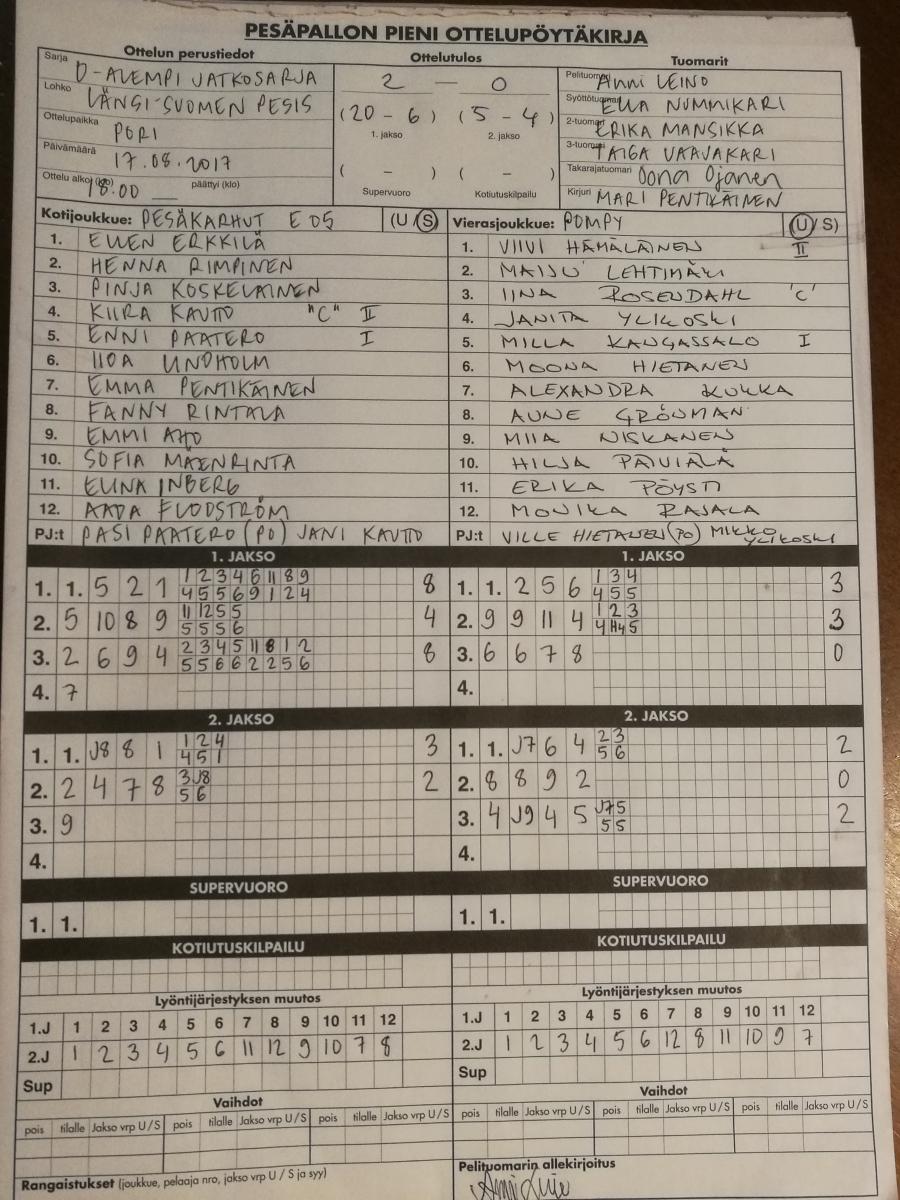 PESÄPALLON PIENI OTTELUPÖYTÄKIRJA
Ottelun perustiedot
Sarja D-ALEMPI JATKOSARJA
Lohko LÄNSI-SUOMEN PESIS
Ottelupaikka PORI
Päivämäärä 17.08.2017
Ottelu alkoi (klo) 18.00 päättyi (klo)
Ottelutulos
2 — 0
(20 - 6) (5 - 4)
1. jakso 2. jakso
( - ) ( - )
Supervuoro Kotiutuskilpailu
Tuomarit
Pelituomari Anni LEINO
Syöttötuomari ELLA NUMMIKARI
2-tuomari ERIKA MANSIKKA
3-tuomari TAIGA VAAVAKARI
Takarajatuomari Oona Ojanen
Kirjuri MARI PENTIKÄINEN
Kotijoukkue: PESÄKARHUT E 05 (U / S)
1. ELLEN ERKKILÄ
2. HENNA RIMPINEN
3. PINJA KOSKELAINEN
4. KIIRA KAUTTO "C" II
5. ENNI PAATERO I
6. IIDA LINDHOLM
7. EMMA PENTIKÄINEN
8. FANNY RINTALA
9. EMMI AHO
10. SOFIA MÄENRINTA
11. ELINA INBERG
12. AADA FLODSTRÖM
PJ:t PASI PAATERO (PO) JANI KAUTTO
Vierasjoukkue: POMPY (U / S)
1. VIIVI HÄMÄLÄINEN II
2. MAIJU LEHTIMÄKI
3. IINA ROSENDAHL 'C'
4. JANITA YLIKOSKI
5. MILLA KANGASSALO I
6. MOONA HIETANEN
7. ALEXANDRA KUKKA
8. AUNE GRÖNMAN
9. MIIA NISKANEN
10. HILJA PÄIVIÄLÄ
11. ERIKA PÖYSTI
12. MONIKA RAJALA
PJ:t VILLE HIETANEN (PO) MIKKO YLIKOSKI
1. JAKSO
1. 1. 5 2 1 1 2 3 4 6 11 8 9 8
4 5 5 6 9 1 2 4
2. 5 10 8 9 11 12 5 5 4
5 5 5 6
3. 2 6 9 4 2 3 4 5 11 8 1 2 8
5 5 6 6 2 2 5 6
4. 7
1. JAKSO
1. 1. 2 5 6 1 3 4 3
4 5 5
2. 9 9 11 4 1 2 3 3
4 H4 5
3. 6 6 7 8 0
4.
2. JAKSO
1. 1. J8 8 1 1 2 4 3
4 5 1
2. 2 4 7 8 3 J8 2
5 6
3. 9
4.
2. JAKSO
1. 1. J7 6 4 2 3 2
5 6
2. 8 8 9 2 0
3. 4 J9 4 5 J7 5 2
5 5
4.
SUPERVUORO
1. 1.
SUPERVUORO
1. 1.
KOTIUTUSKILPAILU
KOTIUTUSKILPAILU
Lyöntijärjestyksen muutos
1.J 1 2 3 4 5 6 7 8 9 10 11 12
2.J 1 2 3 4 5 6 11 12 9 10 7 8
Sup
Lyöntijärjestyksen muutos
1.J 1 2 3 4 5 6 7 8 9 10 11 12
2.J 1 2 3 4 5 6 12 8 11 10 9 7
Sup
Vaihdot
pois tilalle Jakso vrp U / S pois tilalle Jakso vrp U / S pois tilalle Jakso vrp U / S
Vaihdot
pois tilalle Jakso vrp U / S pois tilalle Jakso vrp U / S pois tilalle Jakso vrp U / S
Rangaistukset (joukkue, pelaaja nro, jakso vrp U / S ja syy)
Pelituomarin allekirjoitus